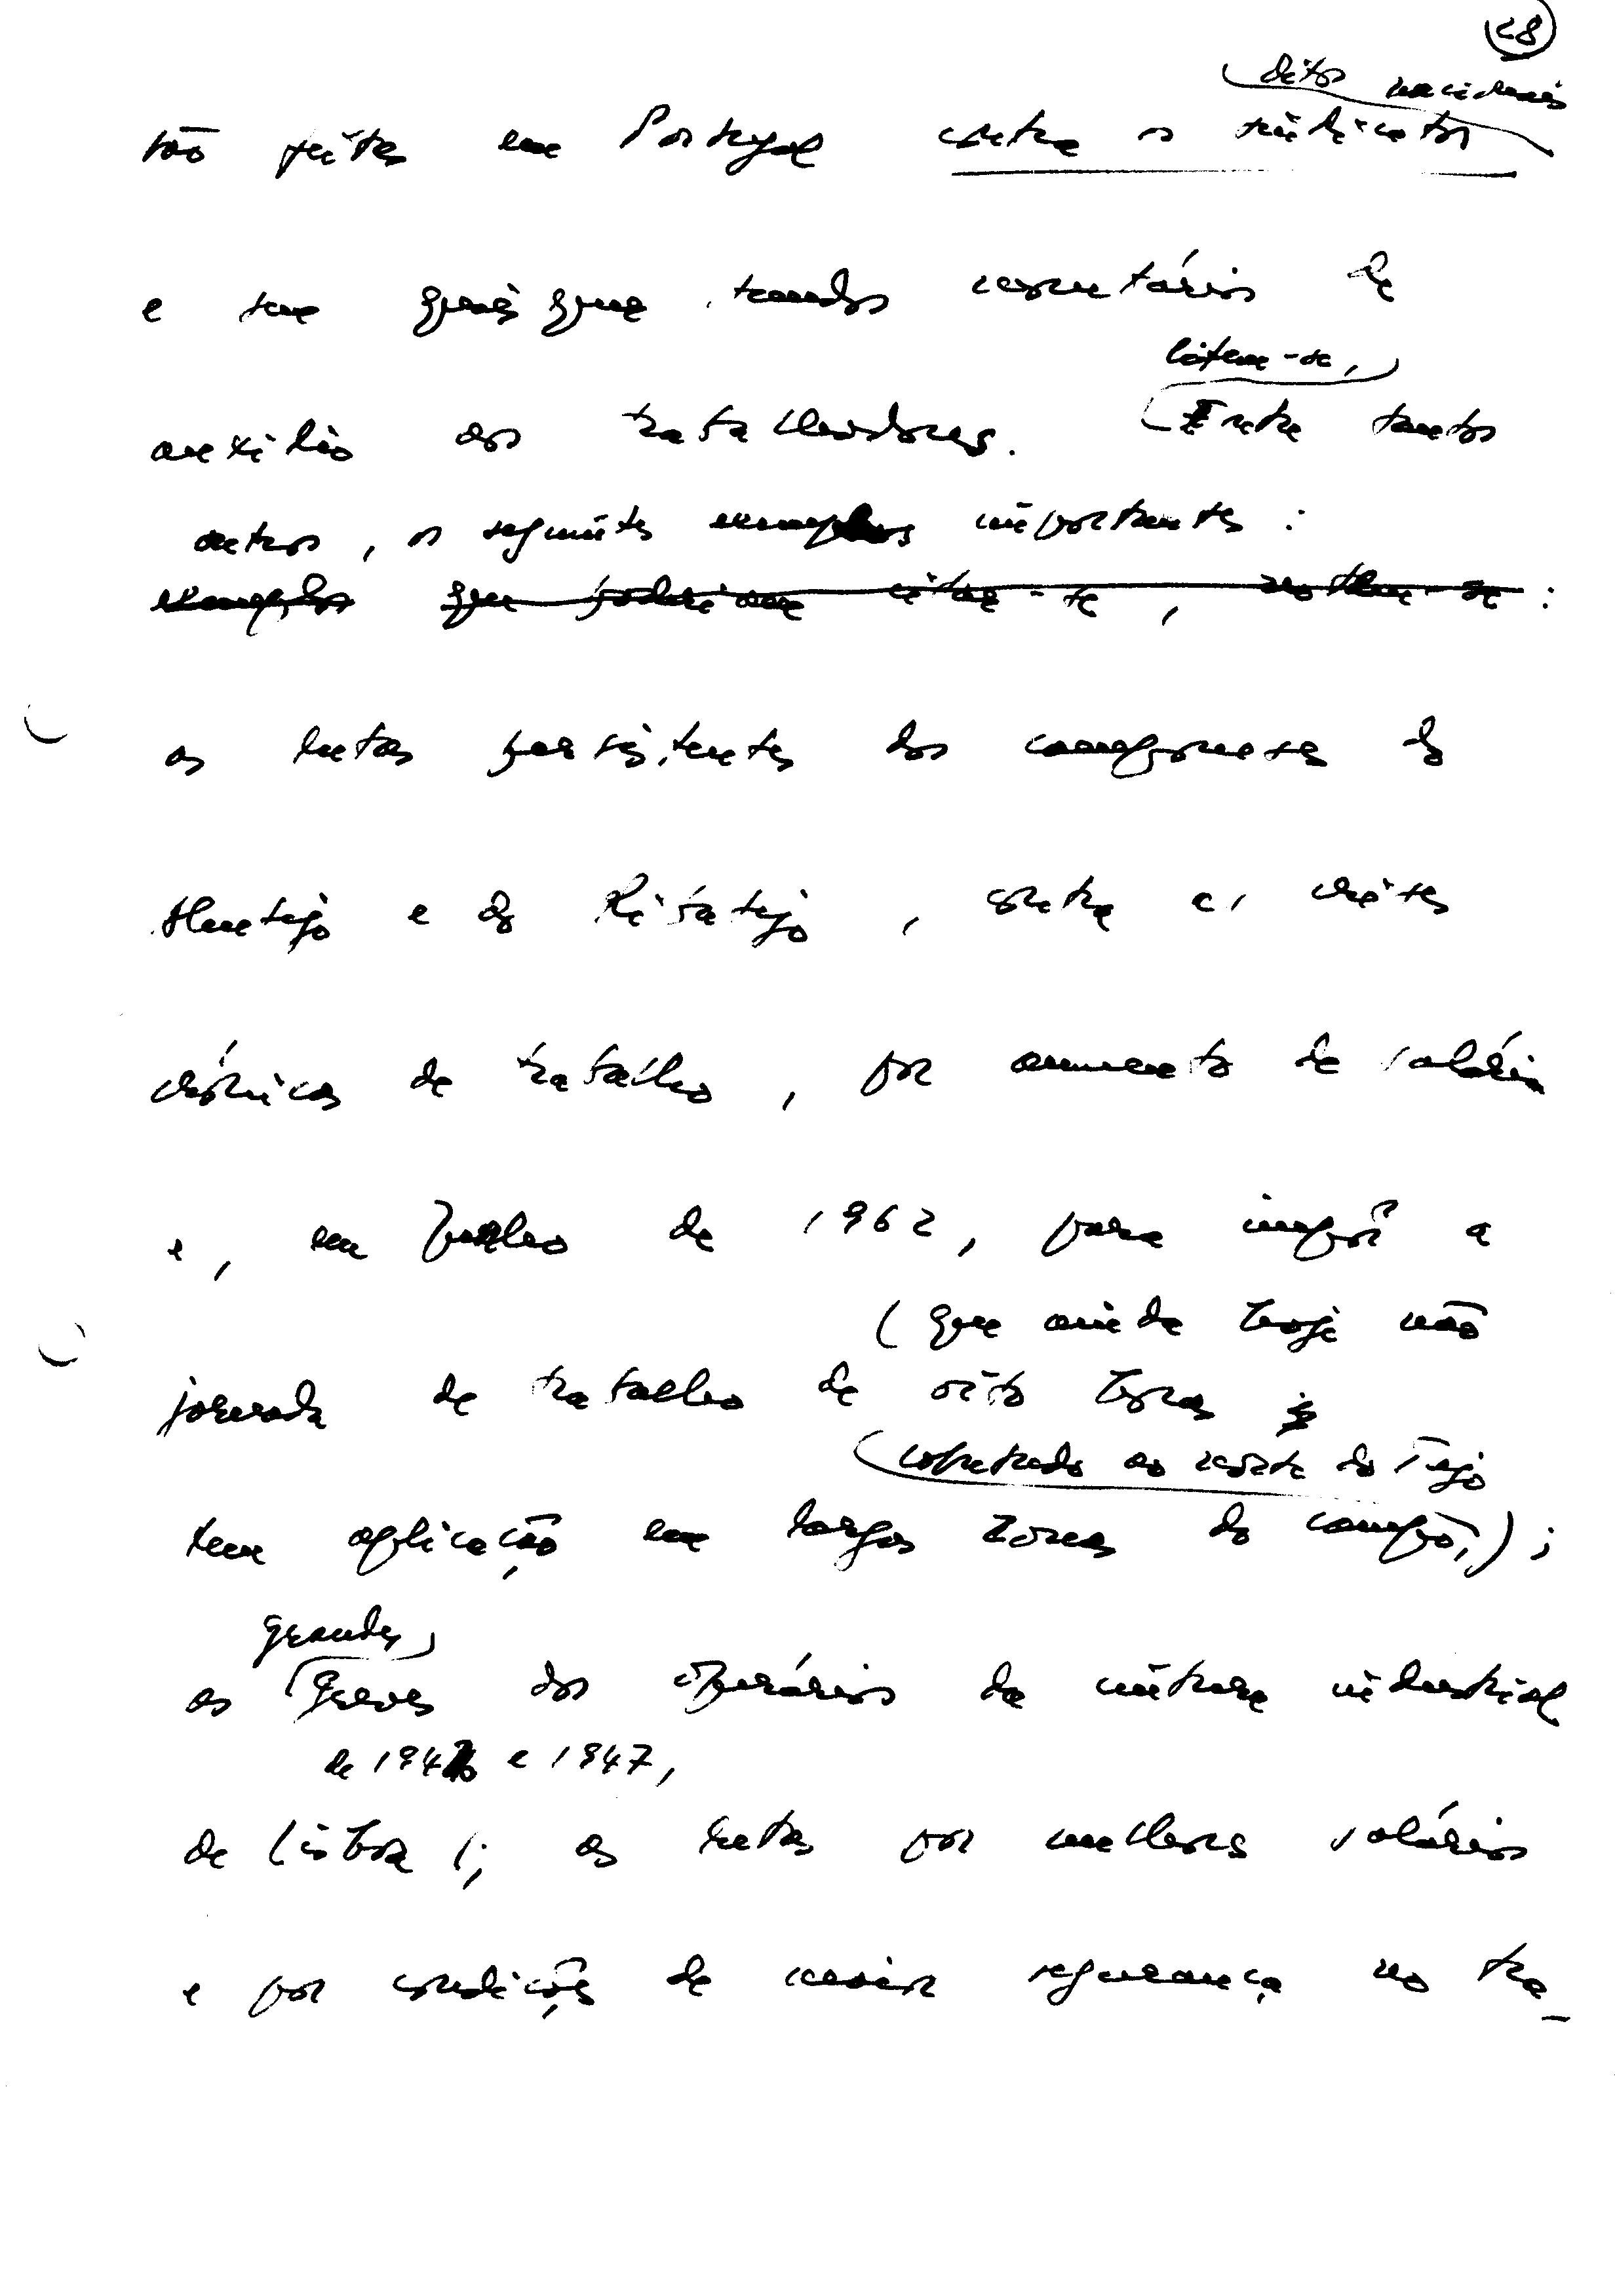 28
ditos nacionais
são feitas em Portugal contra os sindicatos
e sem quaisquer fundos monetários de
Citem-se,
auxílio aos trabalhadores. Entre tantos
outros, os seguintes exemplos importantes:
exemplos que poderiam citar-se,
as lutas persistentes dos camponeses do
Alentejo e do Ribatejo, contra as crises
crónicas de trabalho, por aumento de salário
e, em Junho de 1962, para impor a
(que ainda hoje não
jornada de trabalho de oito horas
sobretudo ao norte do Tejo
tem aplicação em largas zonas do campo,);
grandes
as greves dos operários da cintura industrial
de 194 e 1947,
de Lisboa; as lutas por melhores salários
e por condições de maior segurança no tra-